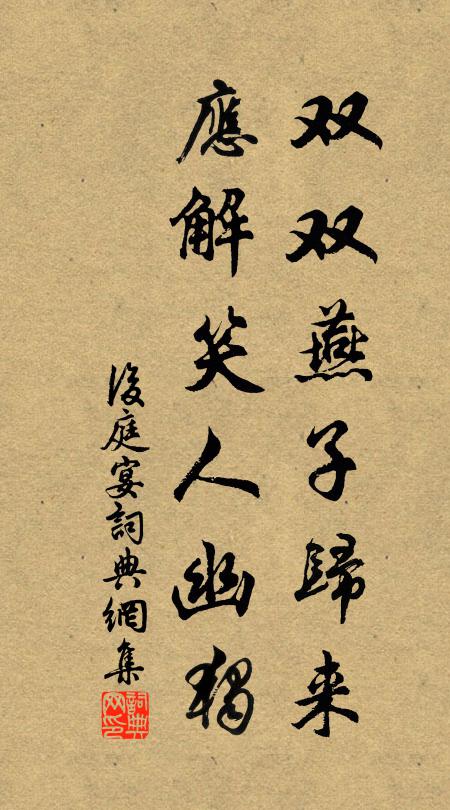 双双燕子歸来
應解笑人幽獨
後庭宴詞典網集
詞典网印